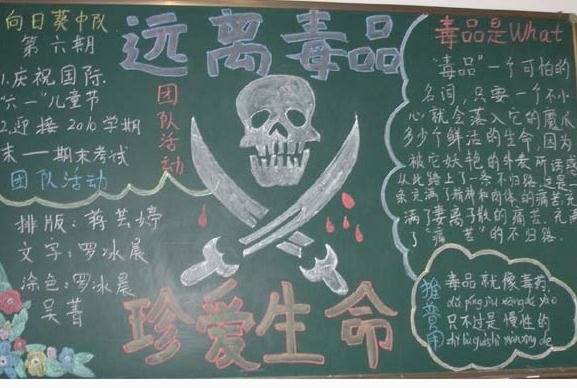 向日葵中队
第六期
1.庆祝国际
六一儿童节
2.迎接2016学期
末——期末考试
团队活动
排版：蒋芸婷
文字：罗冰晨
涂色：罗冰晨
吴菁
远离毒品
团队活动
珍爱生命
毒品是What
“毒品”一个可怕的
名词，只要一个不小
心就会落入它的魔爪
多少个鲜活的生命，因为
被它妖艳的外表所诱惑
从此踏上了一条不归路。这是一
条充满了精神和肉体的痛苦，充
满了妻离子散的痛苦，充满
了“痛苦”的不归路。
毒品就像毒药，
dú pǐn jiù xiàng dú yào
只不过是慢性的